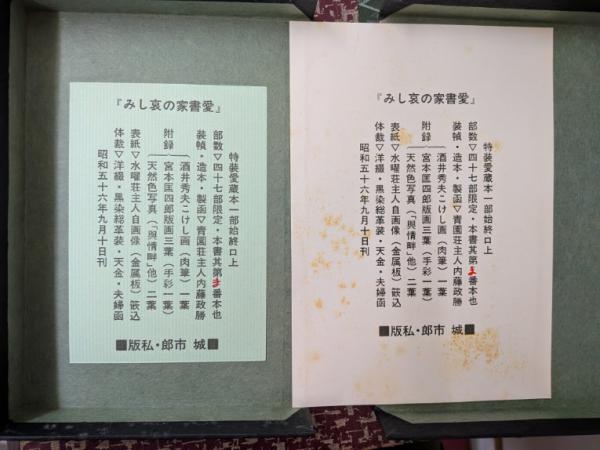 『愛書家の哀しみ』
特装愛蔵本一部始終口上
部数▽四十七部限定・本書其第番本也
装幀・造本・製函▽青園荘主人内藤政勝
酒井秀夫こけし画（肉筆）一葉
附録 宮本匡四郎版画三葉（手彩一葉）
天然色写真（「與情畔」他）二葉
表紙▽水曜荘主人自画像（金属板）嵌込
体裁▽洋綴・黒染総革装・天金・夫婦函
昭和五十六年九月十日刊
■城 市郎・私版■
『愛書家の哀しみ』
特装愛蔵本一部始終口上
部数▽四十七部限定・本書其第番本也
装幀・造本・製函▽青園荘主人内藤政勝
酒井秀夫こけし画（肉筆）一葉
附録 宮本匡四郎版画三葉（手彩一葉）
天然色写真（「與情畔」他）二葉
表紙▽水曜荘主人自画像（金属板）嵌込
体裁▽洋綴・黒染総革装・天金・夫婦函
昭和五十六年九月十日刊
■城 市郎・私版■